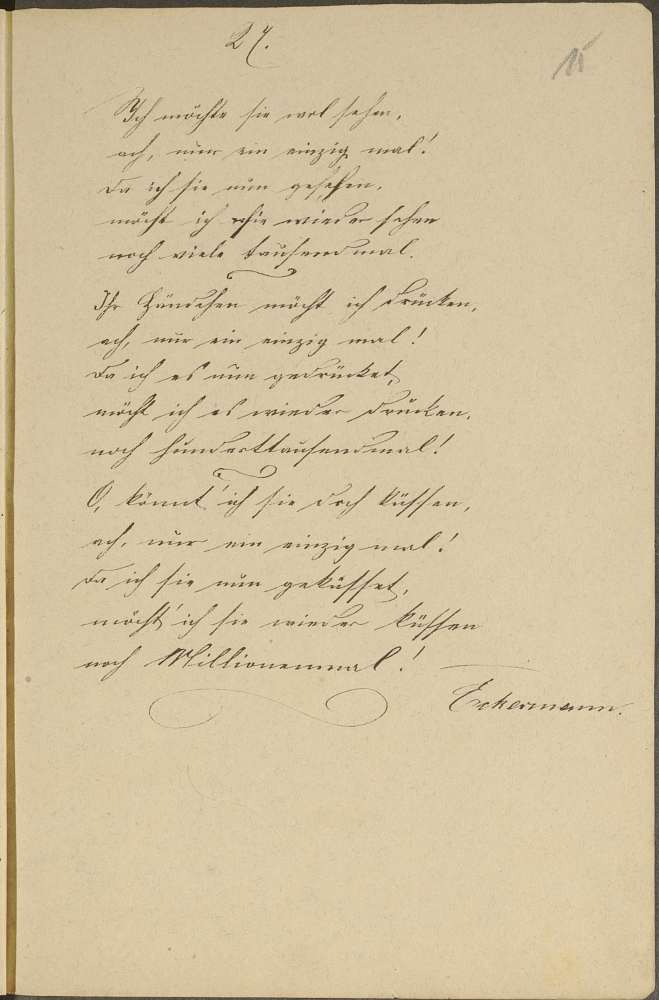 27.
15
Ich möchte sie wol sehen,
ach, nur ein einzig mal!
Da ich sie nun gesehen,
möcht ich sie wieder sehen
noch viele tausendmal.
Ihr Händchen möcht ich drücken,
ach, nur ein einzig mal!
Da ich es nun gedrücket,
möcht ich es wieder drücken,
noch hunderttausendmal!
O, könnt' ich sie doch küssen,
ach, nur ein einzig mal!
Da ich sie nun geküsset,
möcht' ich sie wieder küssen
noch Millionenmal!
Eckermann.